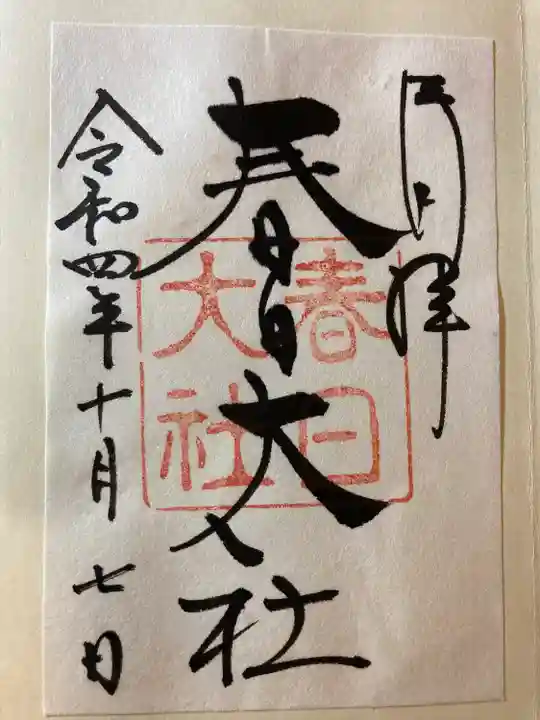 奉拝
春日大社
令和四年十月七日
春日
大社